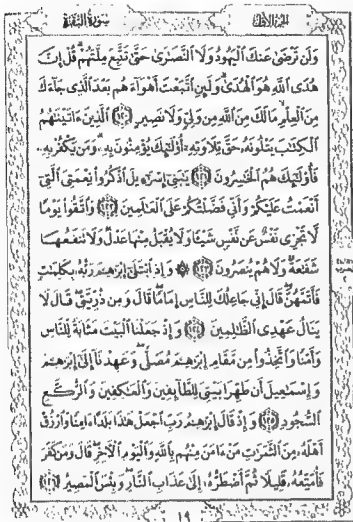 الجزء الأول
سورة البقرة
وَلَن تَرْضَىٰ عَنكَ ٱلْيَهُودُ وَلَا ٱلنَّصَٰرَىٰ حَتَّىٰ تَتَّبِعَ مِلَّتَهُمْ قُلْ إِنَّ
هُدَى ٱللَّهِ هُوَ ٱلْهُدَىٰ وَلَئِنِ ٱتَّبَعْتَ أَهْوَآءَهُم بَعْدَ ٱلَّذِى جَآءَكَ
مِنَ ٱلْعِلْمِ مَالَكَ مِنَ ٱللَّهِ مِن وَلِىٍّ وَلَا نَصِيرٍ ﴿١٢٠﴾ ٱلَّذِينَ ءَاتَيْنَٰهُمُ
ٱلْكِتَٰبَ يَتْلُونَهُۥ حَقَّ تِلَاوَتِهِۦٓ أُو۟لَٰٓئِكَ يُؤْمِنُونَ بِهِۦ وَمَن يَكْفُرْ بِهِۦ
فَأُو۟لَٰٓئِكَ هُمُ ٱلْخَٰسِرُونَ ﴿١٢١﴾ يَٰبَنِىٓ إِسْرَٰٓءِيلَ ٱذْكُرُوا۟ نِعْمَتِىَ ٱلَّتِىٓ
أَنْعَمْتُ عَلَيْكُمْ وَأَنِّى فَضَّلْتُكُمْ عَلَى ٱلْعَٰلَمِينَ ﴿١٢٢﴾ وَٱتَّقُوا۟ يَوْمًا
لَّا تَجْزِى نَفْسٌ عَن نَّفْسٍ شَيْـًٔا وَلَا يُقْبَلُ مِنْهَا عَدْلٌ وَلَا تَنفَعُهَا
شَفَٰعَةٌ وَلَا هُمْ يُنصَرُونَ ﴿١٢٣﴾ ۞ وَإِذِ ٱبْتَلَىٰٓ إِبْرَٰهِۦمَ رَبُّهُۥ بِكَلِمَٰتٍ
فَأَتَمَّهُنَّ قَالَ إِنِّى جَاعِلُكَ لِلنَّاسِ إِمَامًا قَالَ وَمِن ذُرِّيَّتِى قَالَ لَا
يَنَالُ عَهْدِى ٱلظَّٰلِمِينَ ﴿١٢٤﴾ وَإِذْ جَعَلْنَا ٱلْبَيْتَ مَثَابَةً لِّلنَّاسِ
وَأَمْنًا وَٱتَّخِذُوا۟ مِن مَّقَامِ إِبْرَٰهِۦمَ مُصَلًّى وَعَهِدْنَآ إِلَىٰٓ إِبْرَٰهِۦمَ
وَإِسْمَٰعِيلَ أَن طَهِّرَا بَيْتِىَ لِلطَّآئِفِينَ وَٱلْعَٰكِفِينَ وَٱلرُّكَّعِ
ٱلسُّجُودِ ﴿١٢٥﴾ وَإِذْ قَالَ إِبْرَٰهِۦمُ رَبِّ ٱجْعَلْ هَٰذَا بَلَدًا ءَامِنًا وَٱرْزُقْ
أَهْلَهُۥ مِنَ ٱلثَّمَرَٰتِ مَنْ ءَامَنَ مِنْهُم بِٱللَّهِ وَٱلْيَوْمِ ٱلْءَاخِرِ قَالَ وَمَن كَفَرَ
فَأُمَتِّعُهُۥ قَلِيلًا ثُمَّ أَضْطَرُّهُۥٓ إِلَىٰ عَذَابِ ٱلنَّارِ وَبِئْسَ ٱلْمَصِيرُ ﴿١٢٦﴾
١٩